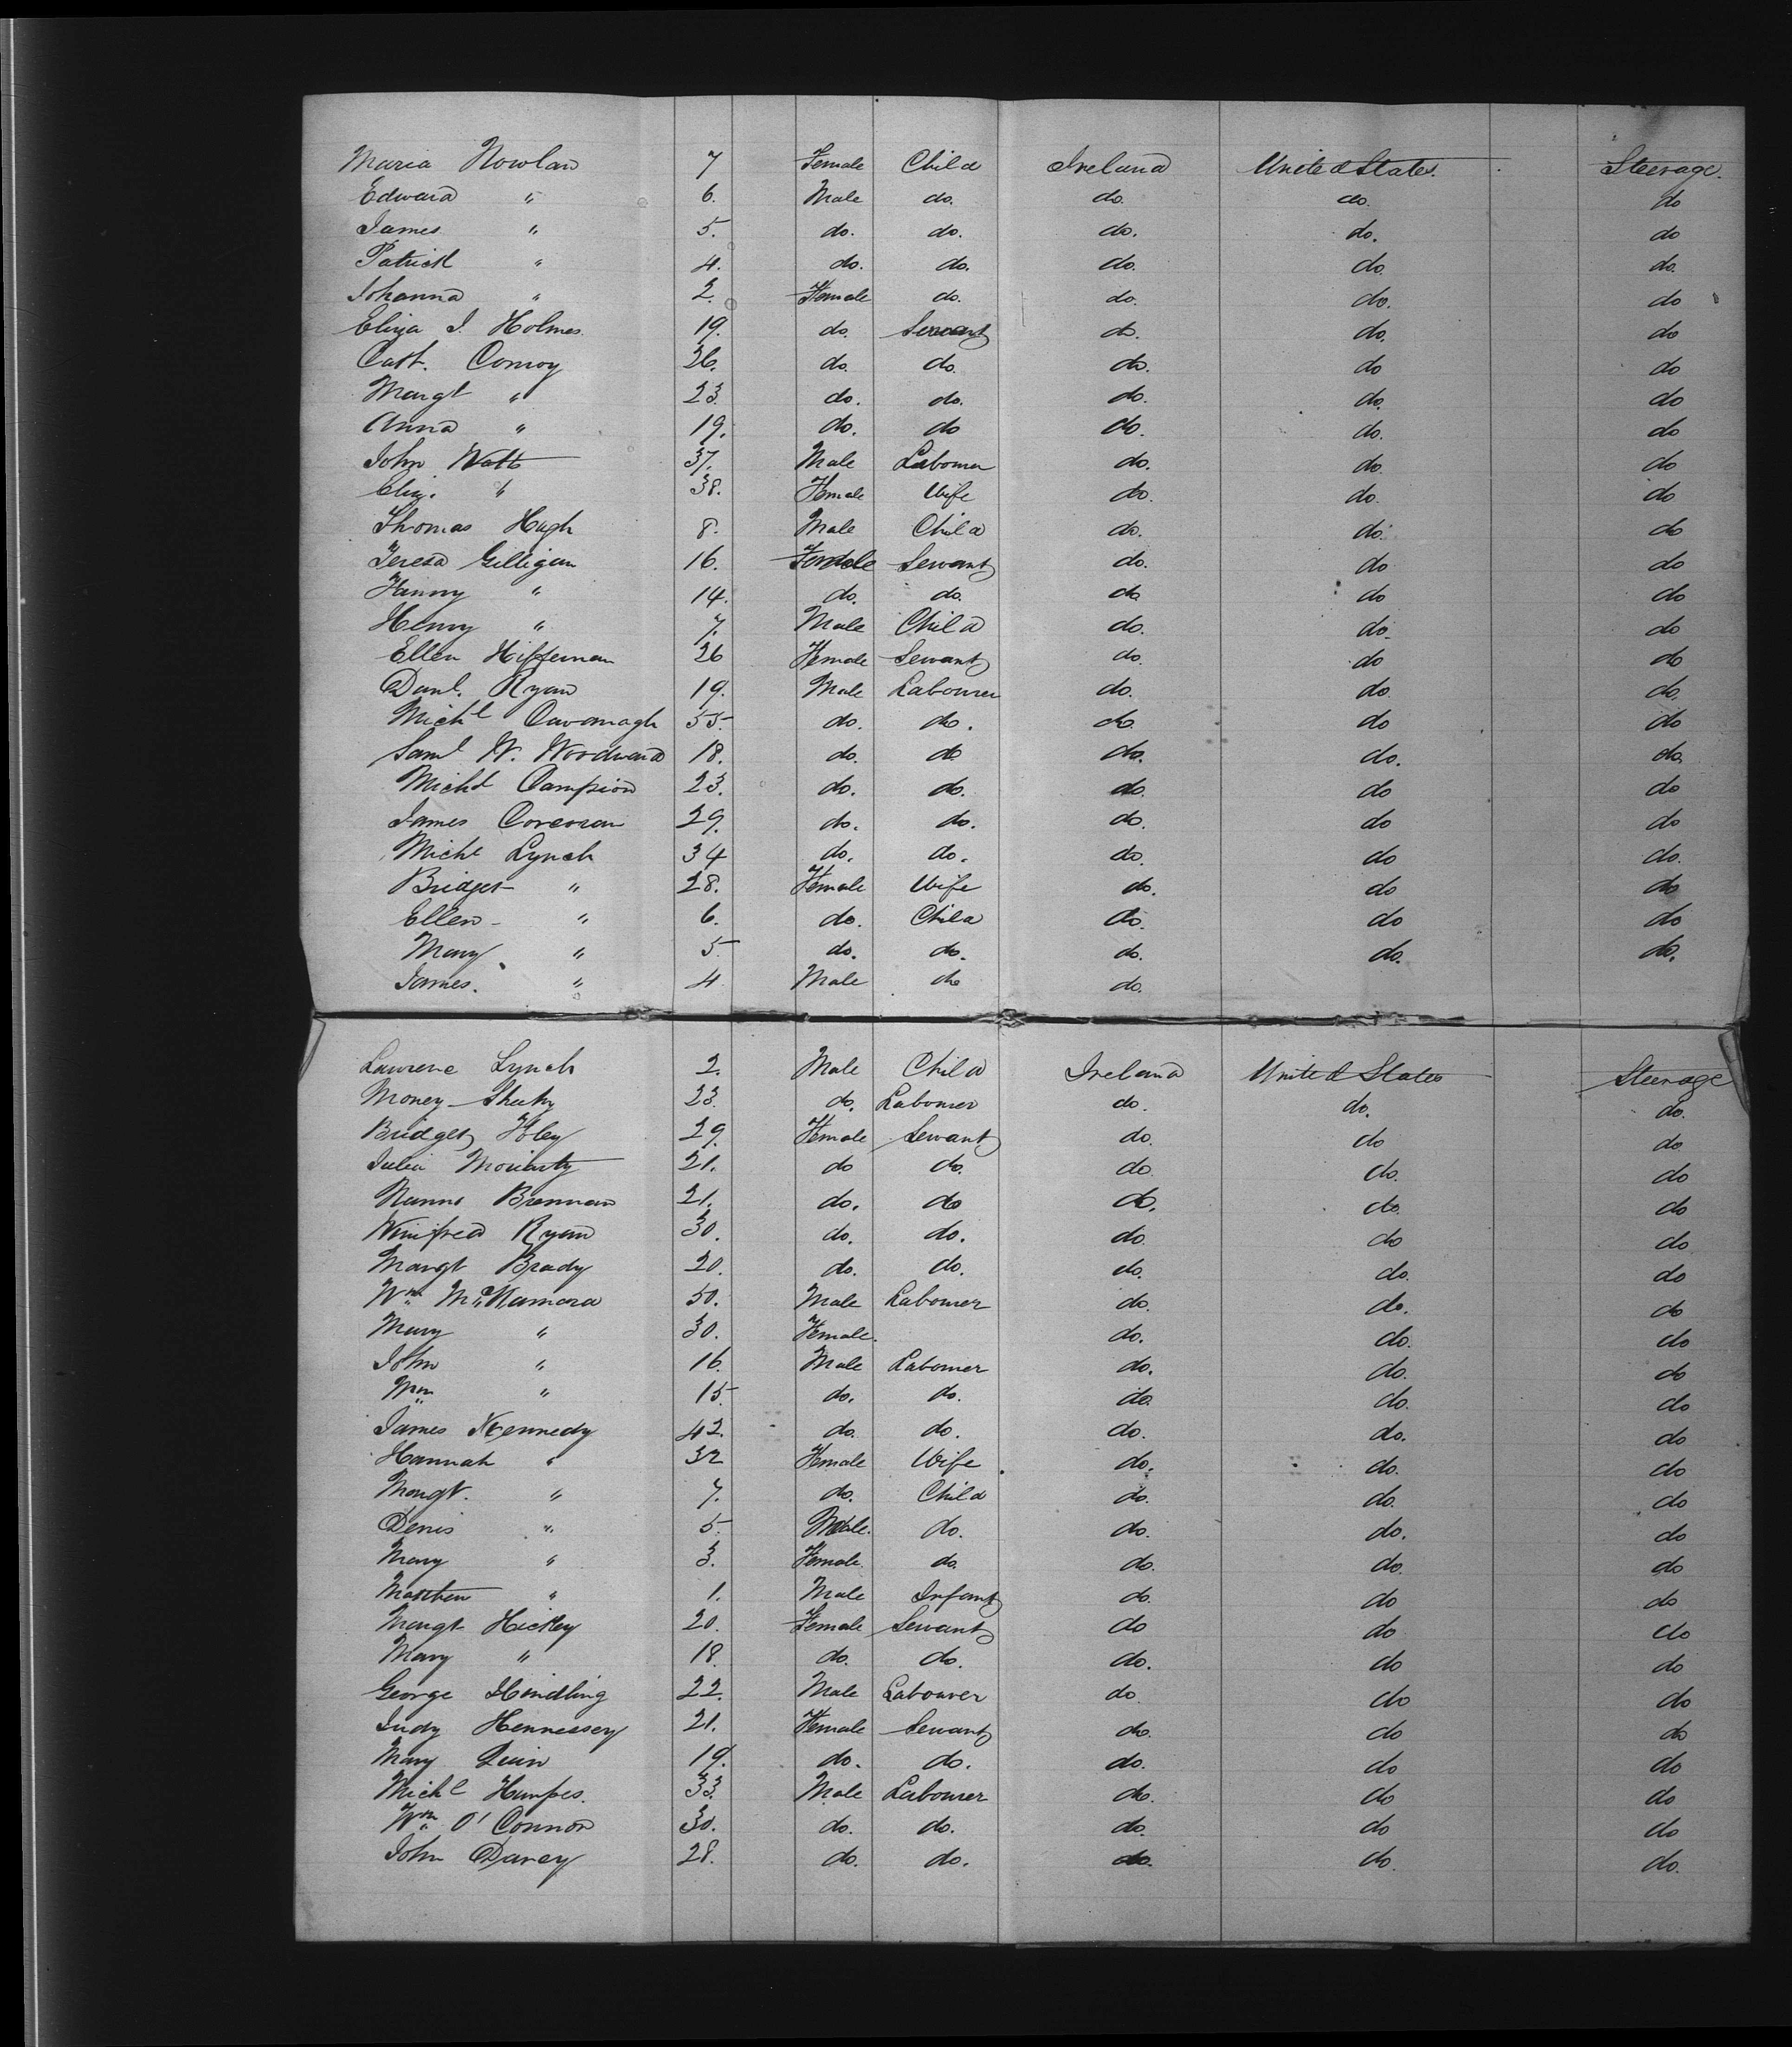 Maria Nowlan 7 Female Child Ireland United States. Steerage.
Edward " 6. Male do. do. do. do
James " 5. do. do. do. do. do
Patrick " 4. do. do. do. do. do.
Johanna " 2. Female do. do. do. do
Eliza J. Holmes. 19. do. Servant do. do. do
Cath. Conroy 26. do. do. do. do do
Margt " 23. do. do. do. do. do
Anna " 19. do. do do. do. do
John Watt 37. Male Labourer do. do. do
Eliz. " 38. Female Wife do. do. do
Thomas Hugh 8. Male Child do. do. do
Teresa Gilligan 16. Female Servant do. do do
Fanny " 14. do. do. do do do
Henry " 7. Male Child do. do. do
Ellen Hiffernan 26 Female Servant do. do do
Danl. Ryan 19. Male Labourer do. do. do.
Michl Cavanagh 55. do. do. do. do do
Saml W. Woodward 18. do. do do. do. do.
Michl Campion 23. do. do. do. do do
James Corcoran 29. do. do. do. do do
Michl Lynch 34 do. do. do. do do.
Bridget " 28. Female Wife do. do do
Ellen " 6. do. Child do. do do
Mary " 5 do. do. do. do. do.
James. " 4 Male do do.
Lawrene Lynch 2. Male Child Ireland United States Steerage
Money Sheehy 23. do. Labourer do. do. do.
Bridget Foley 29. Female Servant do. do do
Julia Moriarty 21. do do. do do. do
Nanno Brennan 21. do. do do. do. do
Winifred Ryan 30. do. do. do do do
Margt Brady 20. do. do. do. do. do
Wm McNamara 50. Male Labourer do. do. do
Mary " 30. Female. do. do. do
John " 16. Male Labourer do. do. do
Wm " 15 do. do. do. do. do
James Kennedy 42. do. do. do. do. do
Hannah " 32 Female Wife do. do. do
Margt. " 7. do. Child do. do. do
Denis " 5. Male. do. do. do. do
Mary " 3. Female do. do. do. do
Matthew " 1. Male Infant do. do do
Margt Hickey 20. Female Servant do do do
Mary " 18. do. do. do. do do
George Hindling 22. Male Labourer do do do
Judy Hennessey 21. Female Servant do. do do
Mary Quin 19. do. do. do. do do
Michl 33. Male Labourer do. do do
Wm O'Connor 30. do. do. do. do do
John Davey 28. do. do. do. do. do.